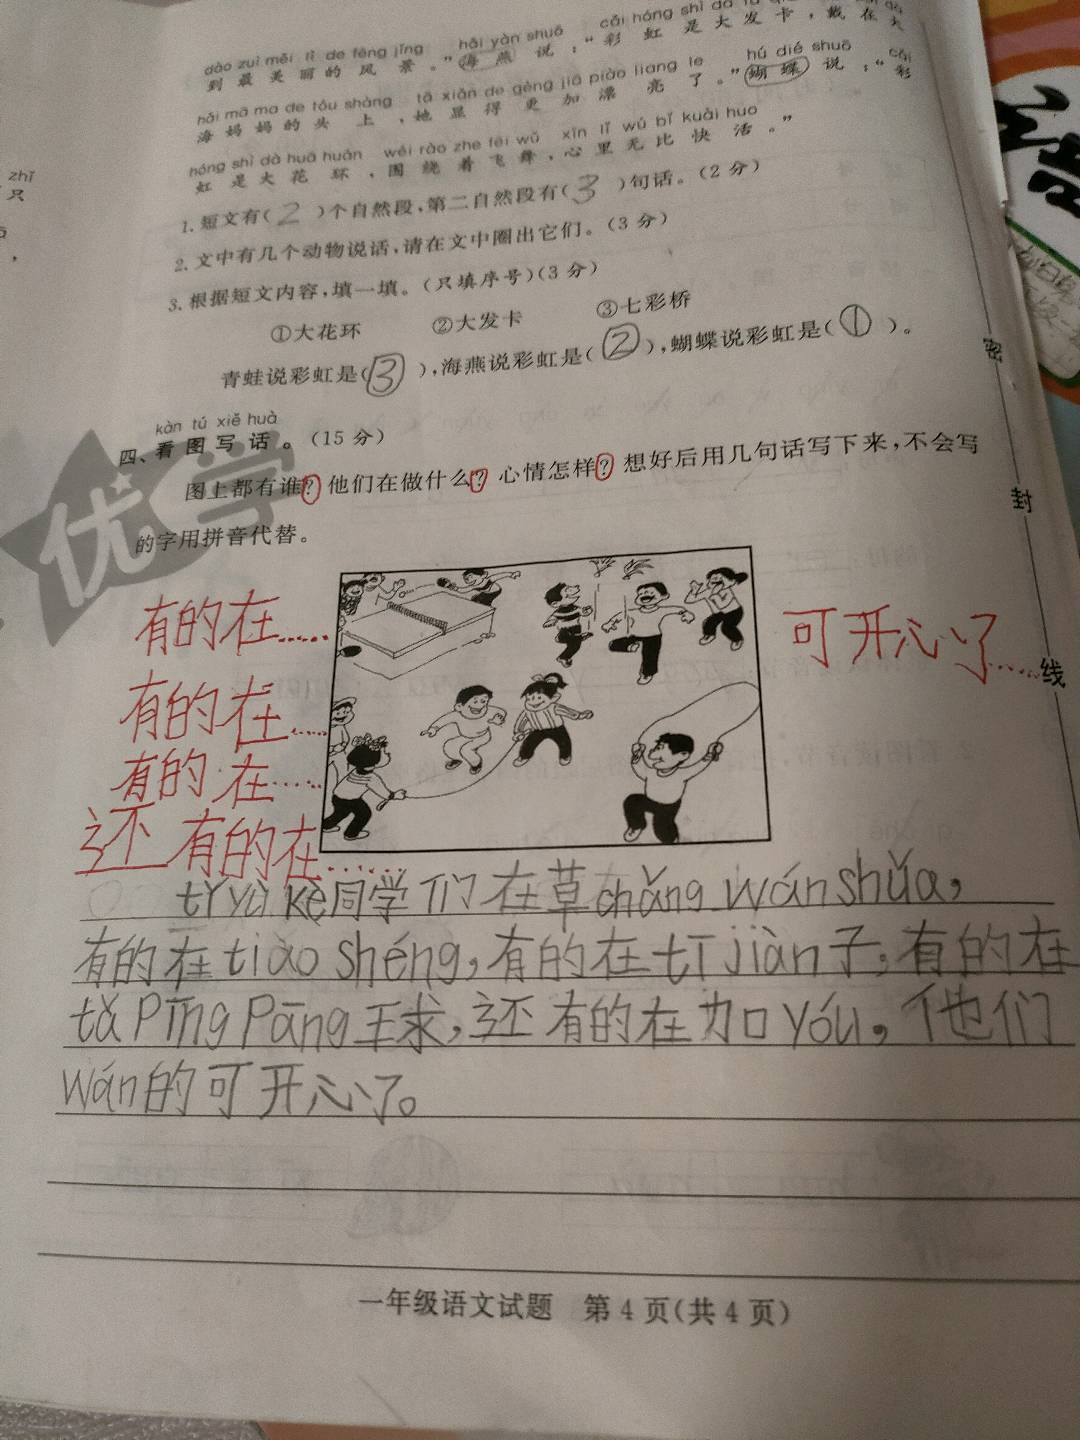 dào zuì měi lì de fēng jǐng hǎi yàn shuō cǎi hóng shì dà fà
到最美丽的风景。”海燕说:“彩虹是大发卡,戴在大
hǎi mā ma de tóu shàng tā xiǎn de gèng jiā piào liang le hú dié shuō cǎi
海妈妈的头上,她显得更加漂亮了。”蝴蝶说:“彩
hóng shì dà huā huán wéi rào zhe fēi wǔ xīn lǐ wú bǐ kuài huo
虹是大花环,围绕着飞舞,心里无比快活。”
1.短文有(2)个自然段,第二自然段有(3)句话。(2分)
2.文中有几个动物说话,请在文中圈出它们。(3分)
3.根据短文内容,填一填。(只填序号)(3分)
①大花环 ②大发卡 ③七彩桥
青蛙说彩虹是(③),海燕说彩虹是(②),蝴蝶说彩虹是(①)。
kàn tú xiě huà
四、看图写话。(15分)
图上都有谁?他们在做什么?心情怎样?想好后用几句话写下来,不会写
的字用拼音代替。
有的在……
有的在……
有的在……
还有的在……
可开心了……
tǐ yù kè同学们在草chǎng wán shuǎ,
有的在tiào shéng,有的在tī jiàn子,有的在
tǎ Pīng Pāng球,还有的在加yóu,他们
wán的可开心了。
一年级语文试题 第4页(共4页)
密
封
线
优学
zhī
只